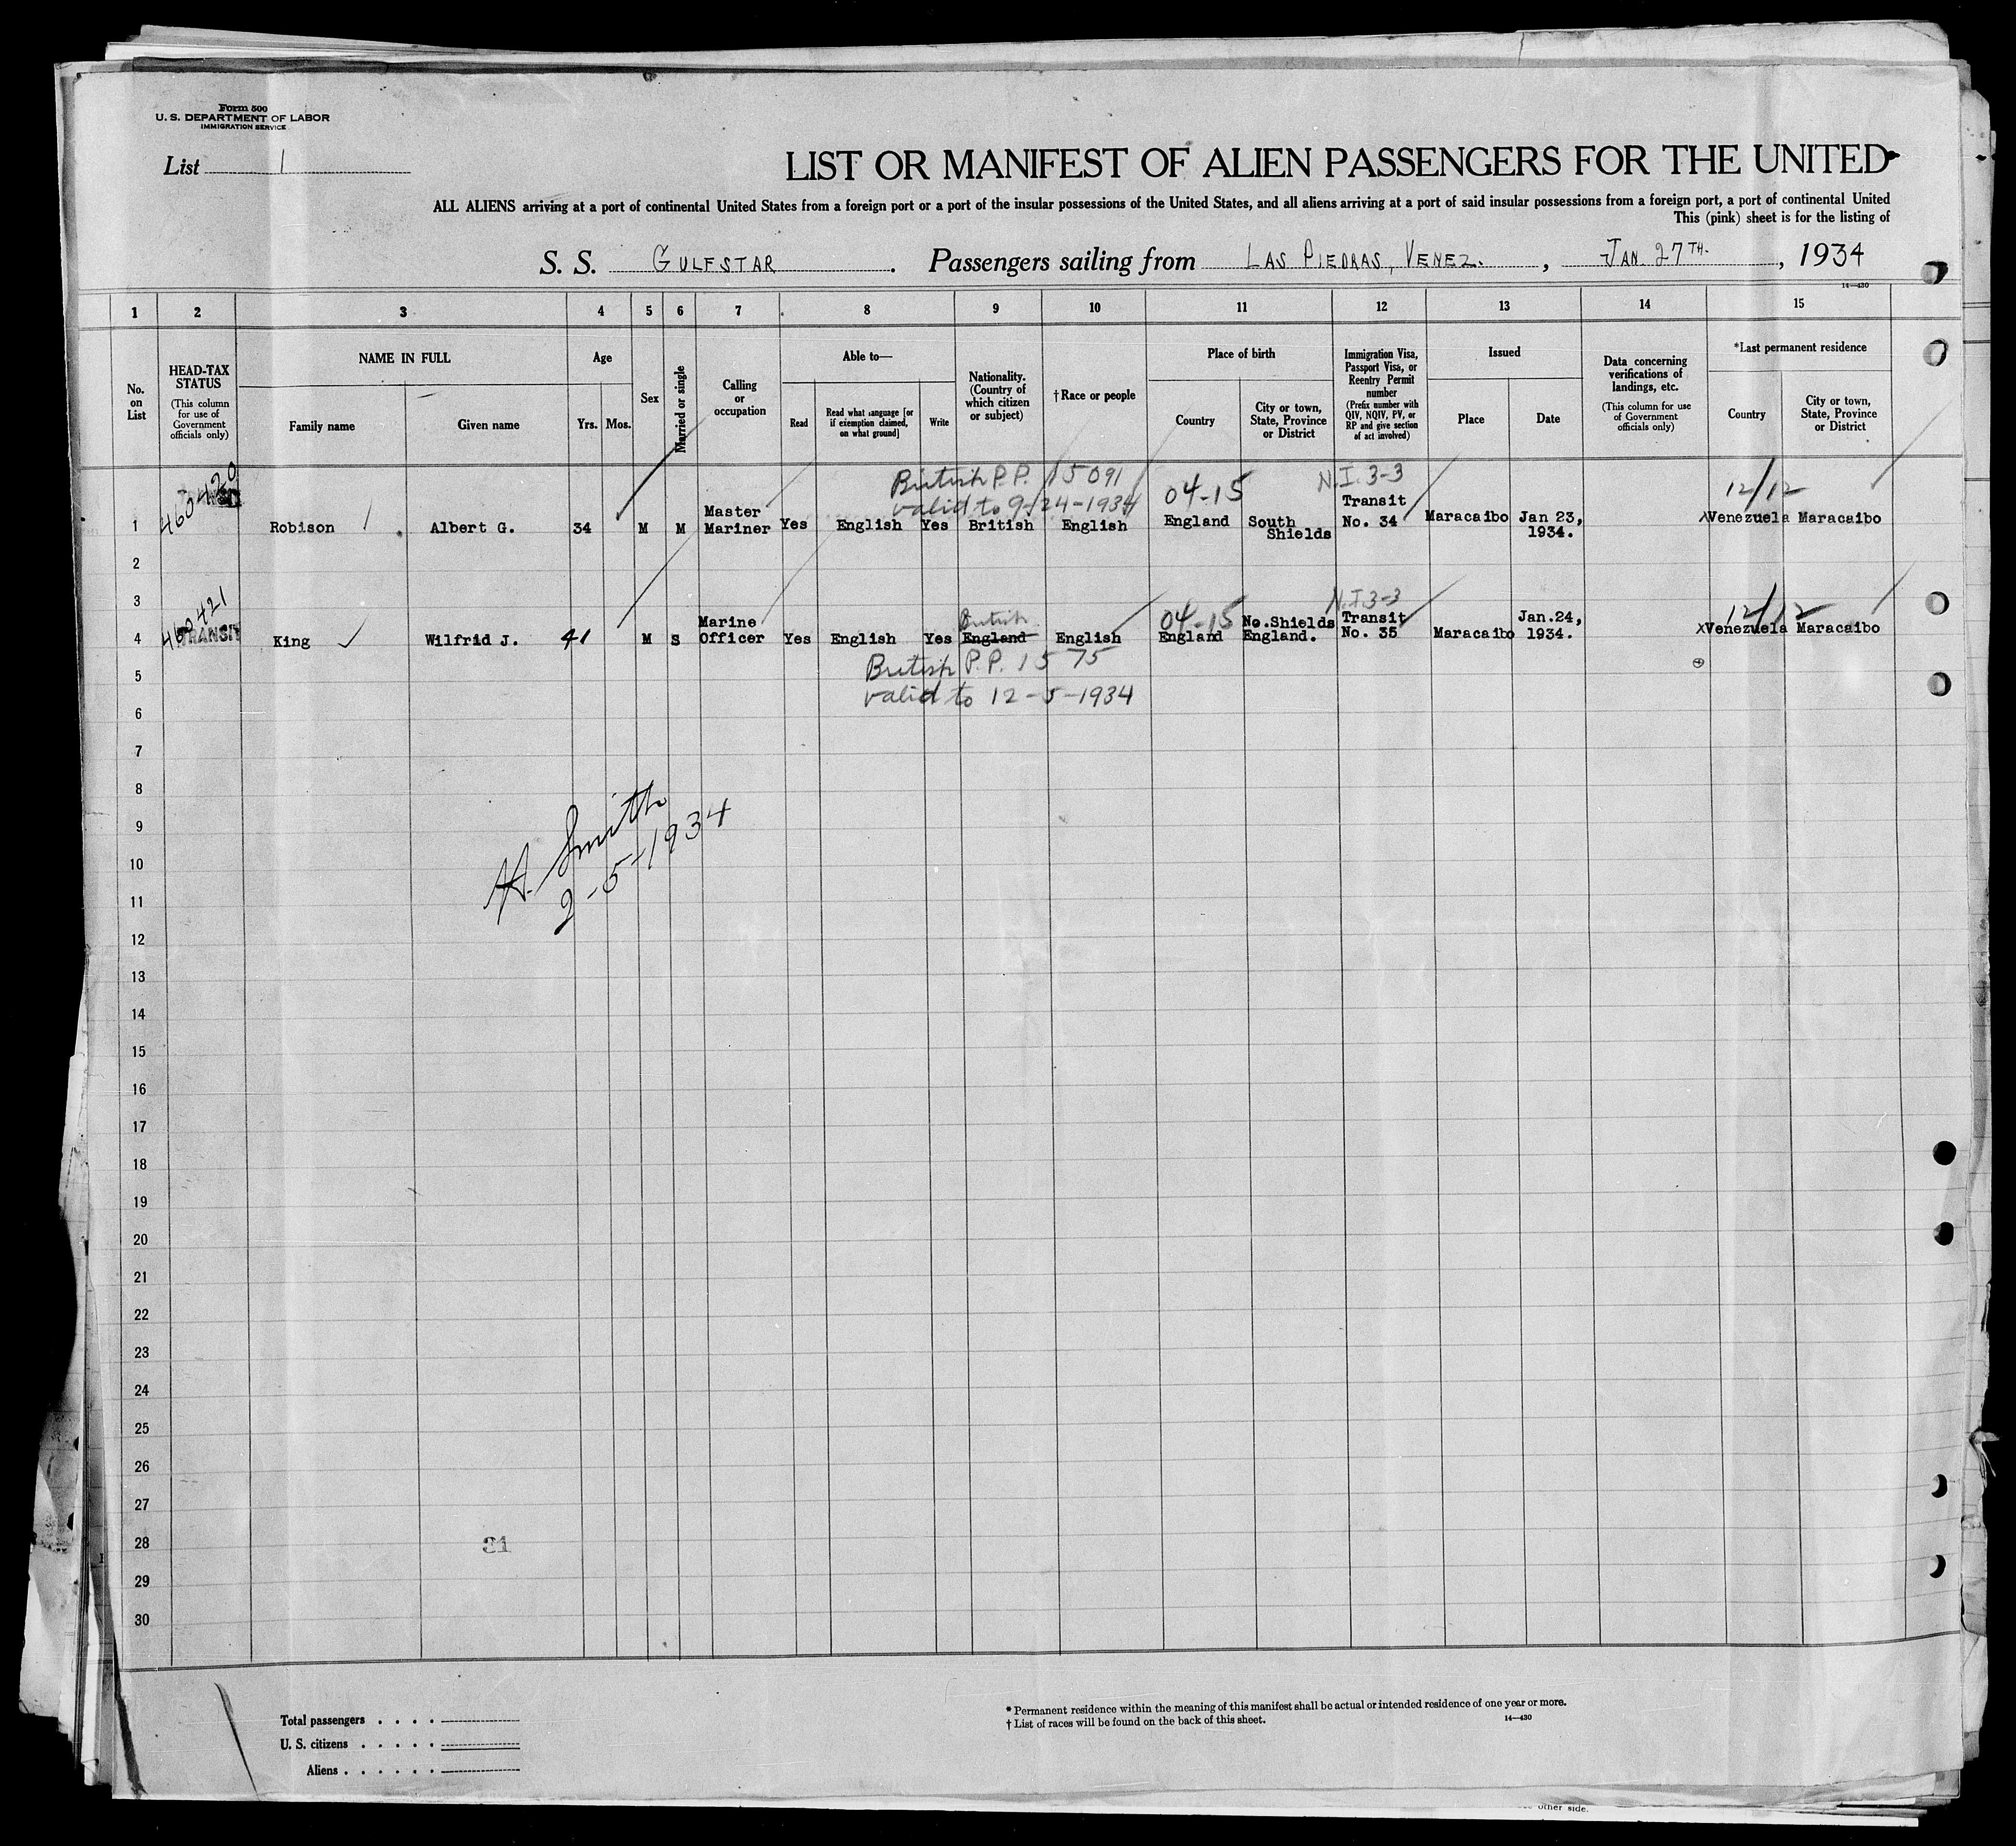 Form 500
U. S. DEPARTMENT OF LABOR
IMMIGRATION SERVICE
List 1
LIST OR MANIFEST OF ALIEN PASSENGERS FOR THE UNITED
ALL ALIENS arriving at a port of continental United States from a foreign port or a port of the insular possessions of the United States, and all aliens arriving at a port of said insular possessions from a foreign port, a port of continental United
This (pink) sheet is for the listing of
S. S. GULFSTAR. Passengers sailing from LAS PIEDRAS, VENEZ., JAN. 27TH., 1934
14—430
1 2 3 4 5 6 7 8 9 10 11 12 13 14 15
No. on List
HEAD-TAX STATUS
(This column for use of Government officials only)
NAME IN FULL
Family name
Given name
Age
Yrs.
Mos.
Sex
Married or single
Calling or occupation
Able to—
Read
Read what language [or if exemption claimed, on what ground]
Write
Nationality. (Country of which citizen or subject)
†Race or people
Place of birth
Country
City or town, State, Province or District
Immigration Visa, Passport Visa, or Reentry Permit number
(Prefix number with QIV, NQIV, PV, or RP and give section of act involved)
Issued
Place
Date
Data concerning verifications of landings, etc.
(This column for use of Government officials only)
*Last permanent residence
Country
City or town, State, Province or District
460420
British P.P. 15091
valid to 9-24-1934
04-15
N.I. 3-3
12/12
1 Robison Albert G. 34 M M Master Mariner Yes English Yes British English England South Shields Transit No. 34 Maracaibo Jan 23, 1934. XVenezuela Maracaibo
2
3
460421
TRANSIT
British
04-15
N.I. 3-3
12/12
4 King Wilfrid J. 41 M S Marine Officer Yes English Yes England English England No.Shields England. Transit No. 35 Maracaibo Jan.24, 1934. XVenezuela Maracaibo
British P.P. 1575
5
valid to 12-5-1934
6
7
8
H. Smith
9
2-5-1934
10
11
12
13
14
15
16
17
18
19
20
21
22
23
24
25
26
27
28
31
29
30
Total passengers
U. S. citizens
Aliens
* Permanent residence within the meaning of this manifest shall be actual or intended residence of one year or more.
† List of races will be found on the back of this sheet.
14—430
other side.